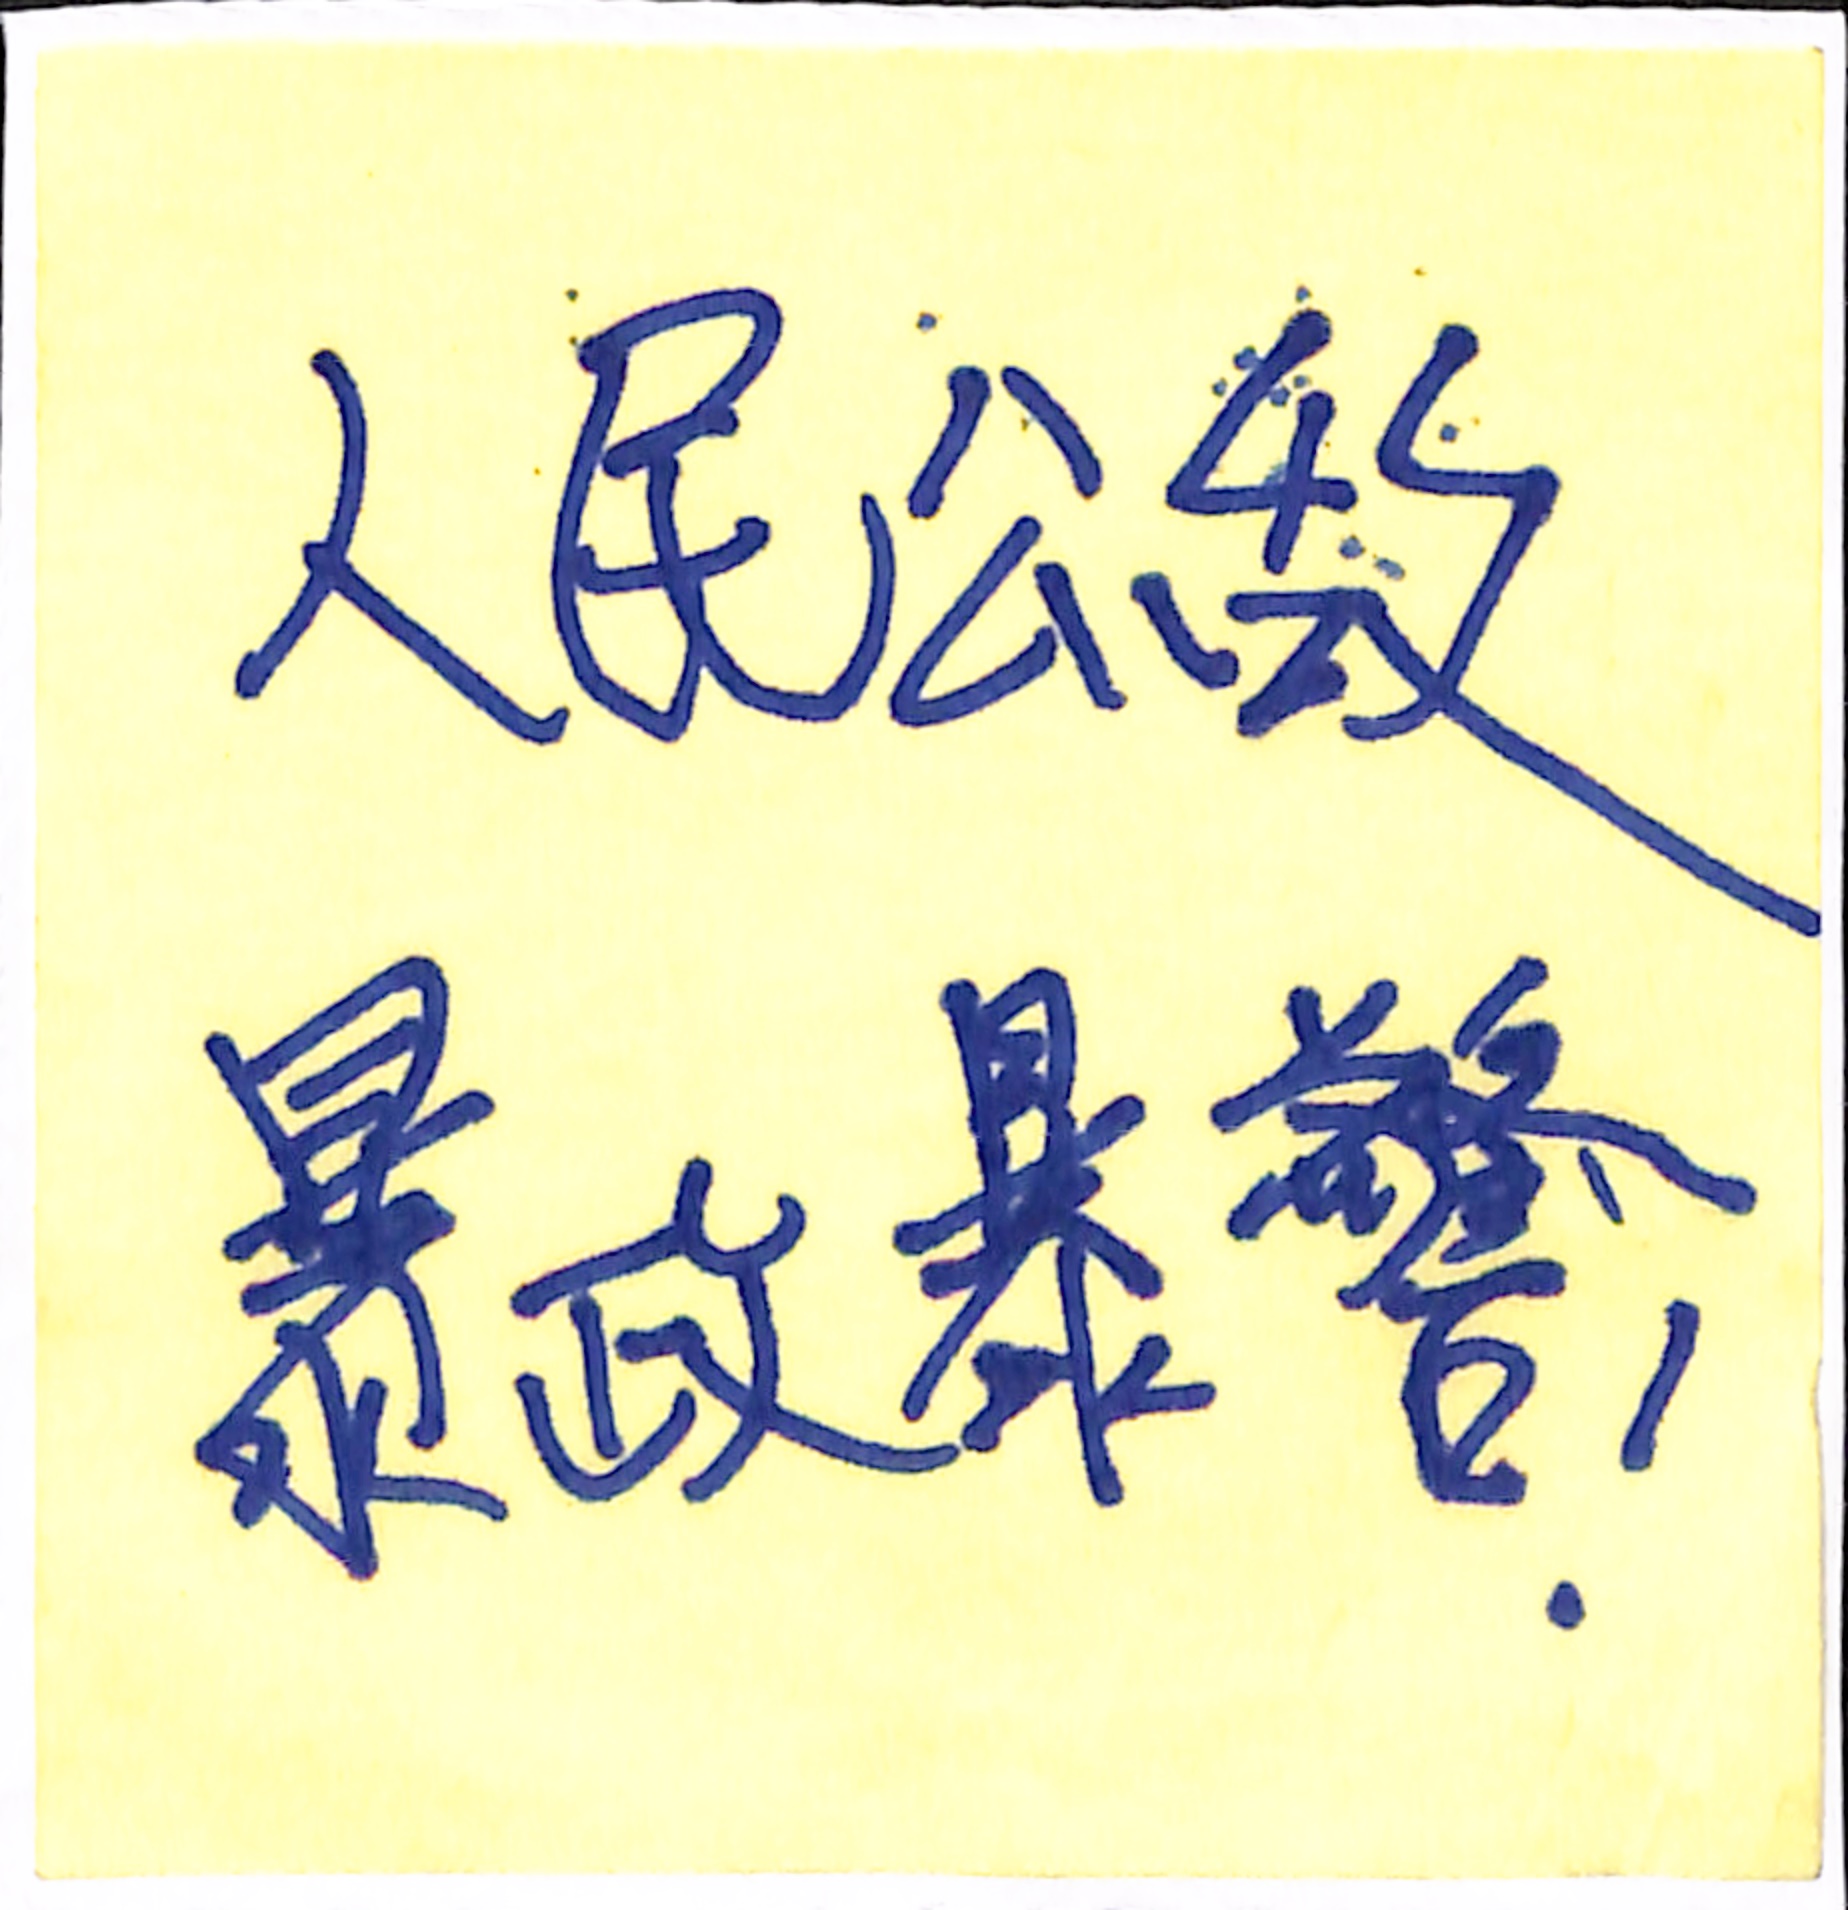 人民公敵
暴政暴警!